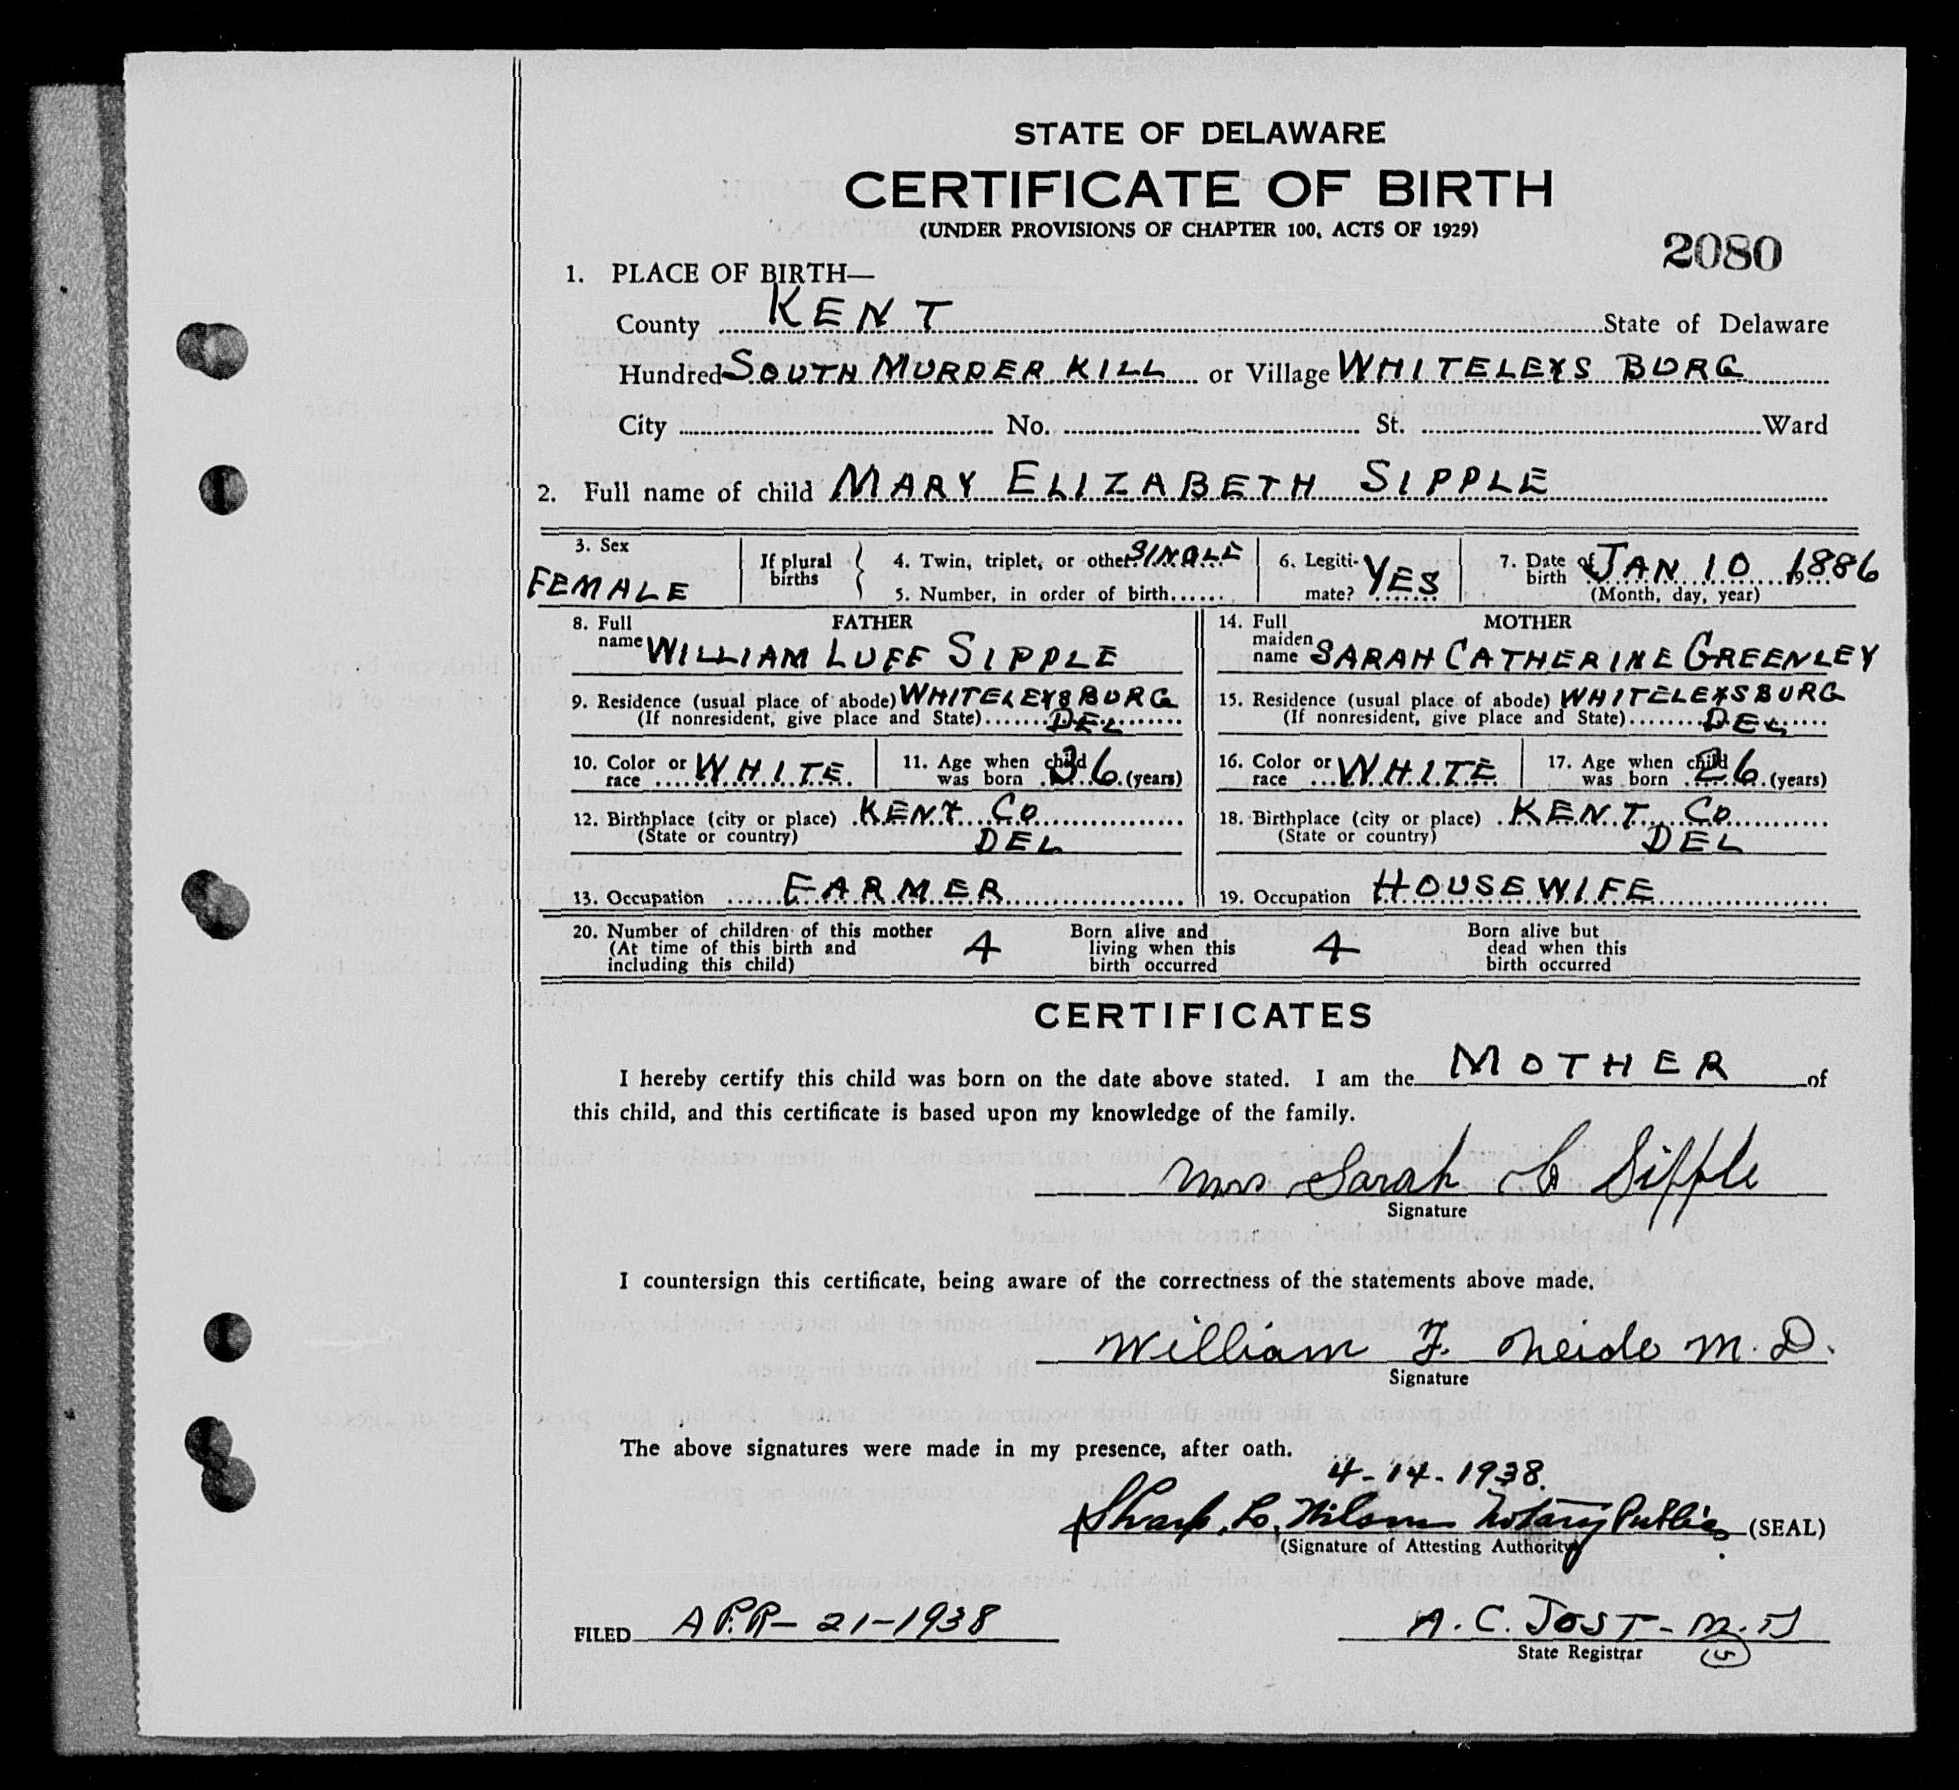 STATE OF DELAWARE
CERTIFICATE OF BIRTH
(UNDER PROVISIONS OF CHAPTER 100, ACTS OF 1929)
2080
1. PLACE OF BIRTH—
County KENT State of Delaware
Hundred SOUTH MURDER KILL or Village WHITELEYS BURG
City No. St. Ward
2. Full name of child MARY ELIZABETH SIPPLE
3. Sex FEMALE
If plural births
4. Twin, triplet, or other SINGLE
5. Number, in order of birth
6. Legitimate? YES
7. Date of birth JAN 10 1886
(Month, day, year)
FATHER
8. Full name WILLIAM LUFF SIPPLE
9. Residence (usual place of abode) WHITELEYSBURG
(If nonresident, give place and State) DEL
10. Color or race WHITE
11. Age when child was born 36 (years)
12. Birthplace (city or place) KENT CO
(State or country) DEL
13. Occupation FARMER
MOTHER
14. Full maiden name SARAH CATHERINE GREENLEY
15. Residence (usual place of abode) WHITELEYSBURG
(If nonresident, give place and State) DEL
16. Color or race WHITE
17. Age when child was born 26 (years)
18. Birthplace (city or place) KENT CO
(State or country) DEL
19. Occupation HOUSEWIFE
20. Number of children of this mother
(At time of this birth and
including this child) 4
Born alive and
living when this
birth occurred 4
Born alive but
dead when this
birth occurred
CERTIFICATES
I hereby certify this child was born on the date above stated. I am the MOTHER of
this child, and this certificate is based upon my knowledge of the family.
Mrs Sarah C Sipple
Signature
I countersign this certificate, being aware of the correctness of the statements above made.
William F. Neide M. D.
Signature
The above signatures were made in my presence, after oath.
4-14-1938.
Sharp. L. Wilson Notary Public (SEAL)
(Signature of Attesting Authority)
FILED APR-21-1938
A. C. JOST - M. D
State Registrar